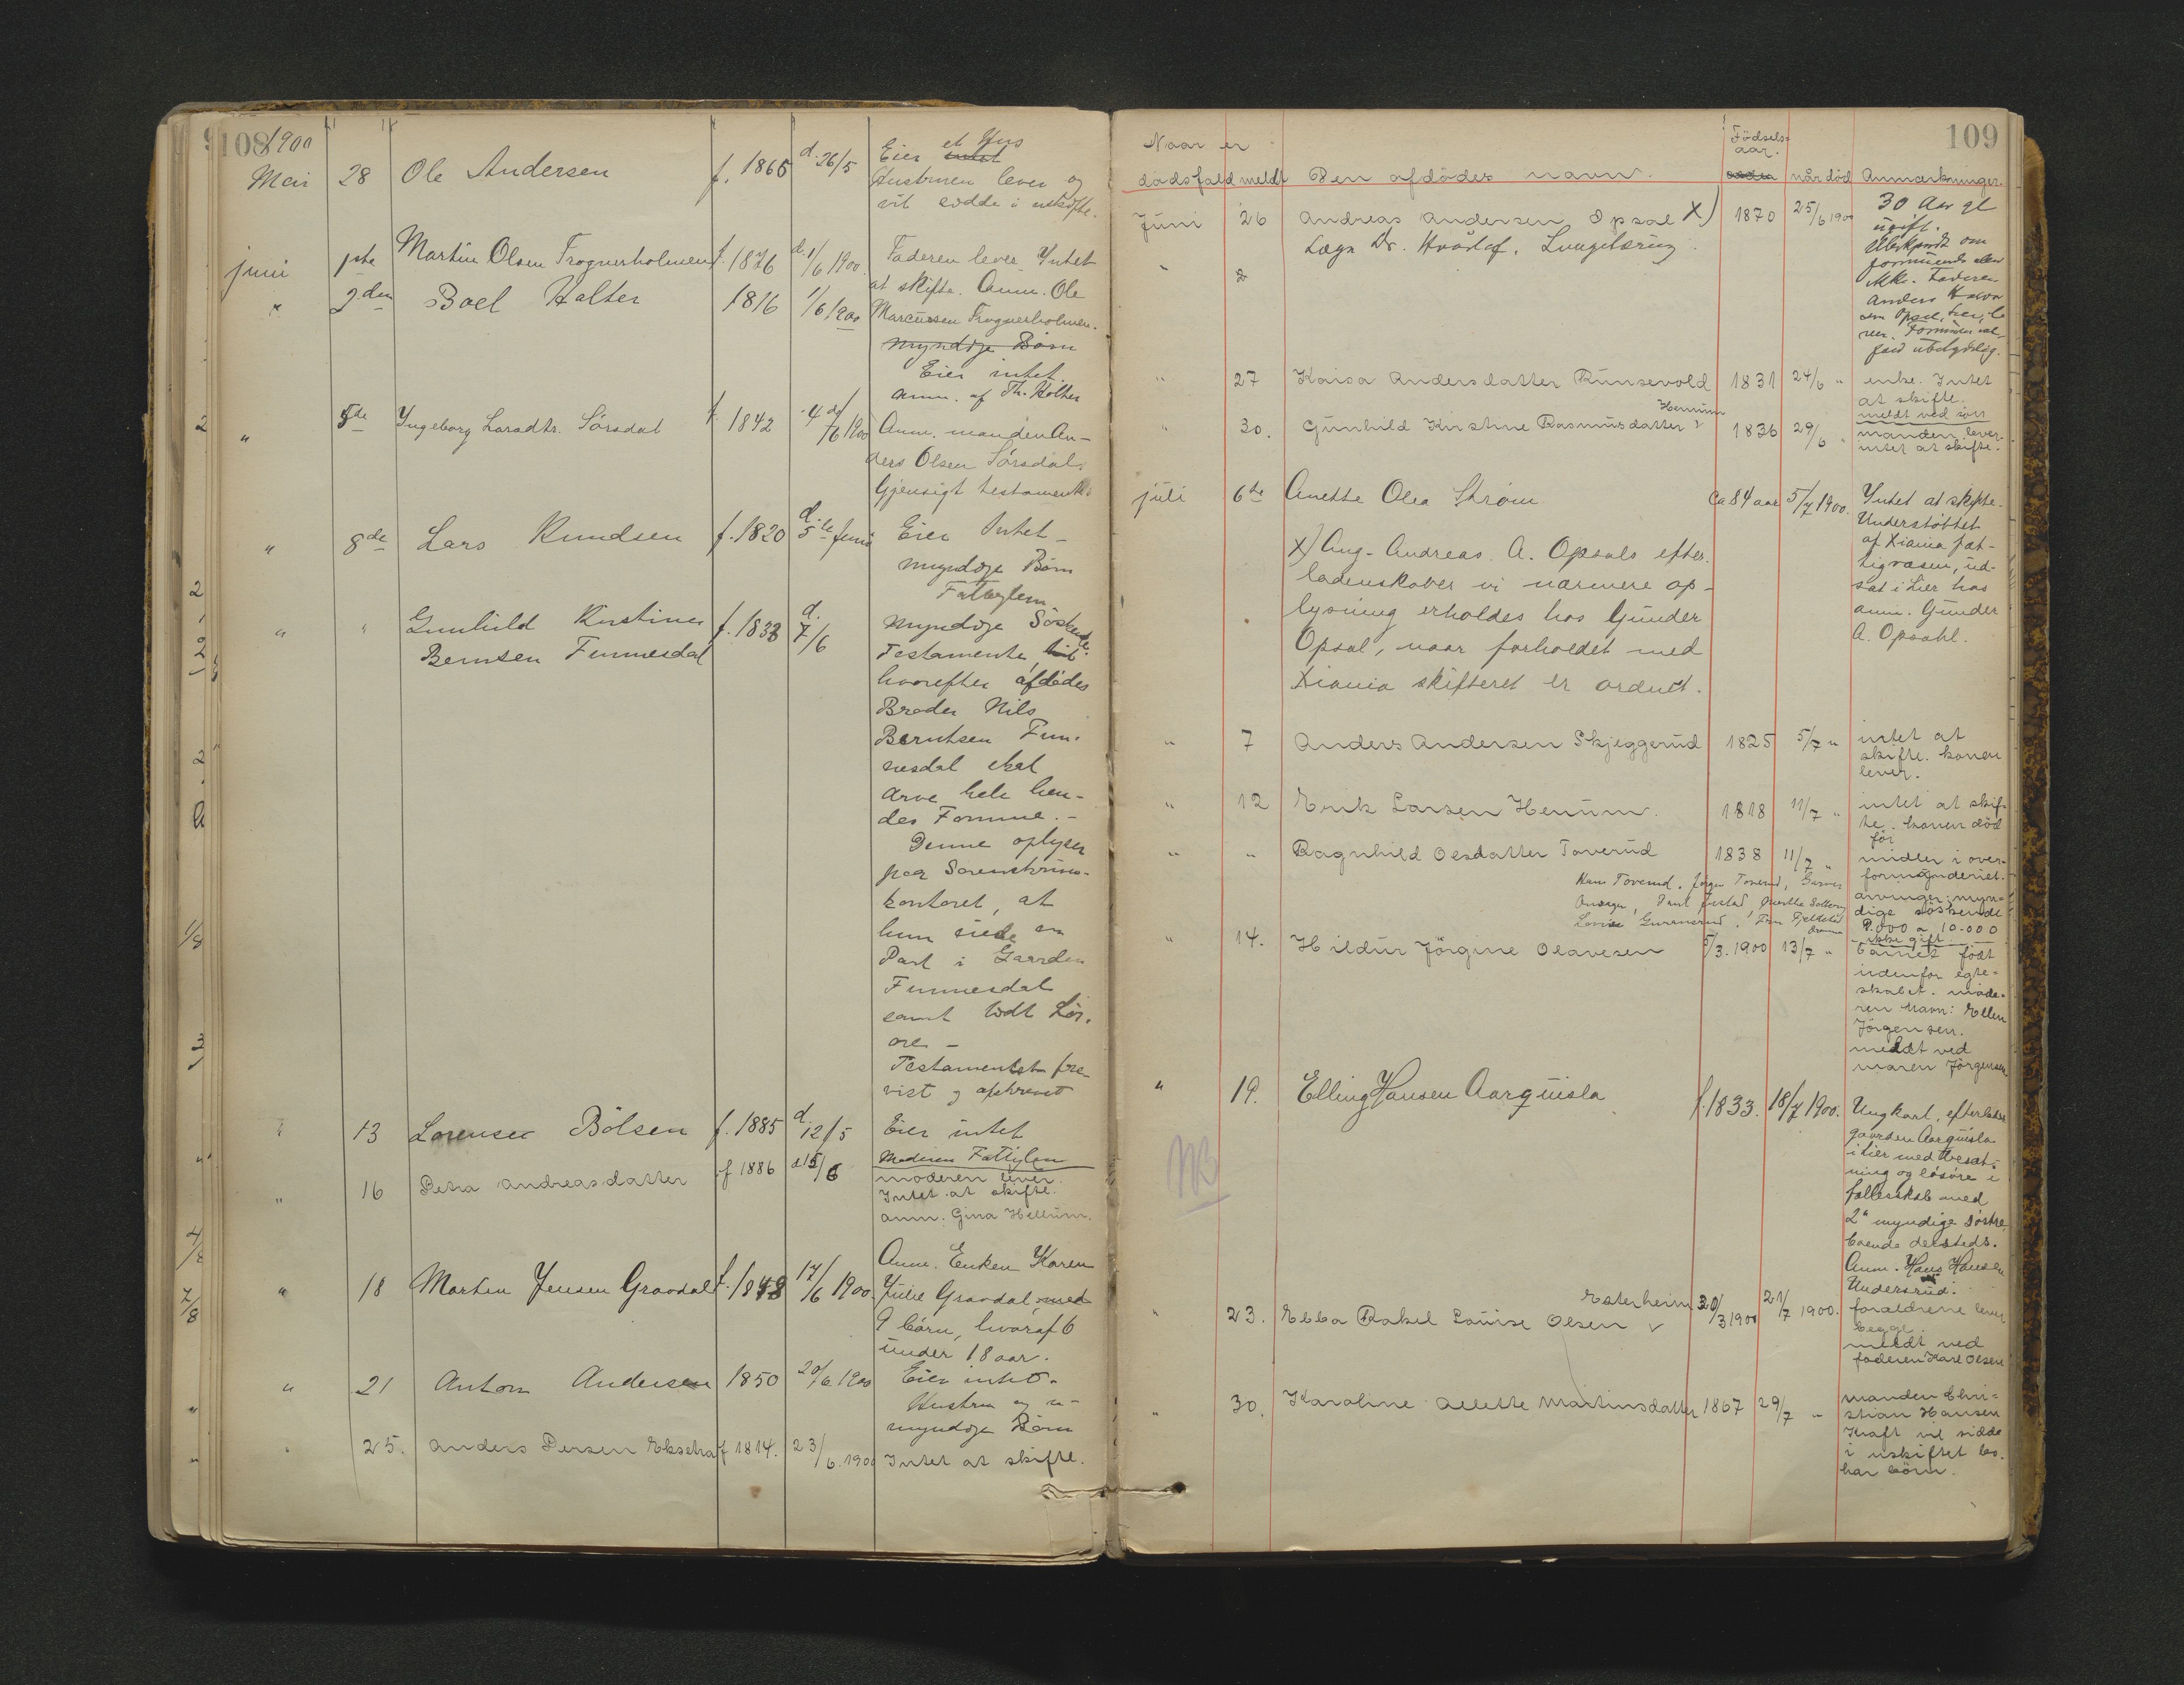 108 1900
Mai 28 Ole Andersen f. 1865 d. 26/5 Eier et Hus
intet
Hustruen lever og
vil sidde i uskifte.
juni 1ste Martin Olsen Frognerholmen f. 1876 d. 1/6 1900 Faderen lever Intet
at skifte. Anm. Ole
Marcussen Frognerholmen.
" 2den Boel Holter 1816 1/6 1900
myndige Börn
Eier intet
Anm. af Th. Holter
" 5te Ingeborg Larsdtr. Sörsdal f. 1842 4de/6 1900 Anm. manden An-
ders Olsen Sörsdal.
Gjensigt testamente
" 8de Lars Knudsen f. 1820 d. 5te juni Eier Intet -
myndige Börn
Fattiglem
" " Gunhild Kirstine f. 1838 d. 7/6 myndige Söskende.
Berntsen Fumesdal
Testamente
hvorefter afdödes
Broder Nils
Berntsen Fum-
mesdal skal
arve hele hen-
des Formue. -
Denne oplyser
paa Sorenskriver-
kontoret, at
hun eiede en
Part i Gaarden
Fummesdal
samt lidt Lös-
öre -
Testamentet fre-
vist og afskrevet
" 13 Lorense Bölsen f. 1885 d. 12/5 Eier intet
Moderen Fattiglem
" 16 Petra Andreasdatter f 1886 d 15/6 moderen lever.
Intet at skifte.
anm. Gina Hellum.
" 18 Martin Jensen Gravdal f. 1848 17/6 1900. Anm. Enken Karen
Julie Gravdal med
9 börn, hvoraf 6
under 18 aar.
" 21 Anton Andersen 1850 20/6 1900 Eier intet.
Hustru og u-
myndige Börn
" 25. Anders Persen Eksetra f 1814. 23/6. 1900 Intet at skifte.
109
Naar er
dödsfald meldt Den afdödes navn. Födsels-
aar. når död Anmærkninger.
Juni 26 Andreas Andersen Opsal X) 1870 25/6 1900 30 Aar gl
Læge Dr. Lungebetændelse
ugift.
Ubekjendt om
formuende eller
ikke. Faderen
Anders
Opsal, her, le
ver.
ubetydelig.
" 27 Kaisa Andersdatter Runsevold 1831 24/6 " enke. Intet
at skifte.
" 30. Gunhild Kirstine Rasmusdatter Hennum 1836 29/6 " meldt ved
manden lever.
intet at skifte.
juli 6te Anette Olea Ström ca 84 aar 5/7 1900. Intet at skifte.
Understöttet
af Xiania fat-
tigvæsen, ud-
sat i Lier hos
anm. Gunder
A. Opsahl.
X) Ang. Andreas A. Opsals efter-
ladenskaber vi nærmere op-
lysning erholdes hos Gunder
Opsal, naar forholdet med
Xiania skifteret er ordnet.
" 7 Anders Andersen Skjeggerud 1825 5/7 " intet at
skifte. konen
lever.
" 12 Erik Larsen Hennum. 1818 11/7 " intet at skif-
te. konen död
för
" " Ragnhild Olsdatter Toverud 1838 11/7 " midler i over-
formynderiet.
arvinger: myn-
dige söskende
8.000 a 10.000
ikke gift
Toverud, Jörgen Toverud,
" 14. Hildur Jörgine Olavesen 5/3. 1900 13/7 " barnet födt
udenfor egte-
skabet. mode-
ren navn: Ellen
Jörgensen.
meldt ved
maren Jörgensen
" 19. Elling Hansen Aarquisla f. 1833. 18/7 1900. Ungkarl, efterlader
gaarden Aarquisla
i Lier med besæt-
ning og lösöre i
fællesskab med
2 myndige söstre
boende dersteds.
Anm. Hans Hansen
Undersrud.
NB
" 23. Ebba Rakel Louise Olsen Esterheim 20/3 1900 21/7 1900. forældrene lever
begge.
meldt ved
faderen Karl Olsen
" 30. Karoline Alette Martinsdatter 1867 29/7 " manden Chri-
stian Hansen
Kraft vil sidde
i uskiftet bo.
har börn.